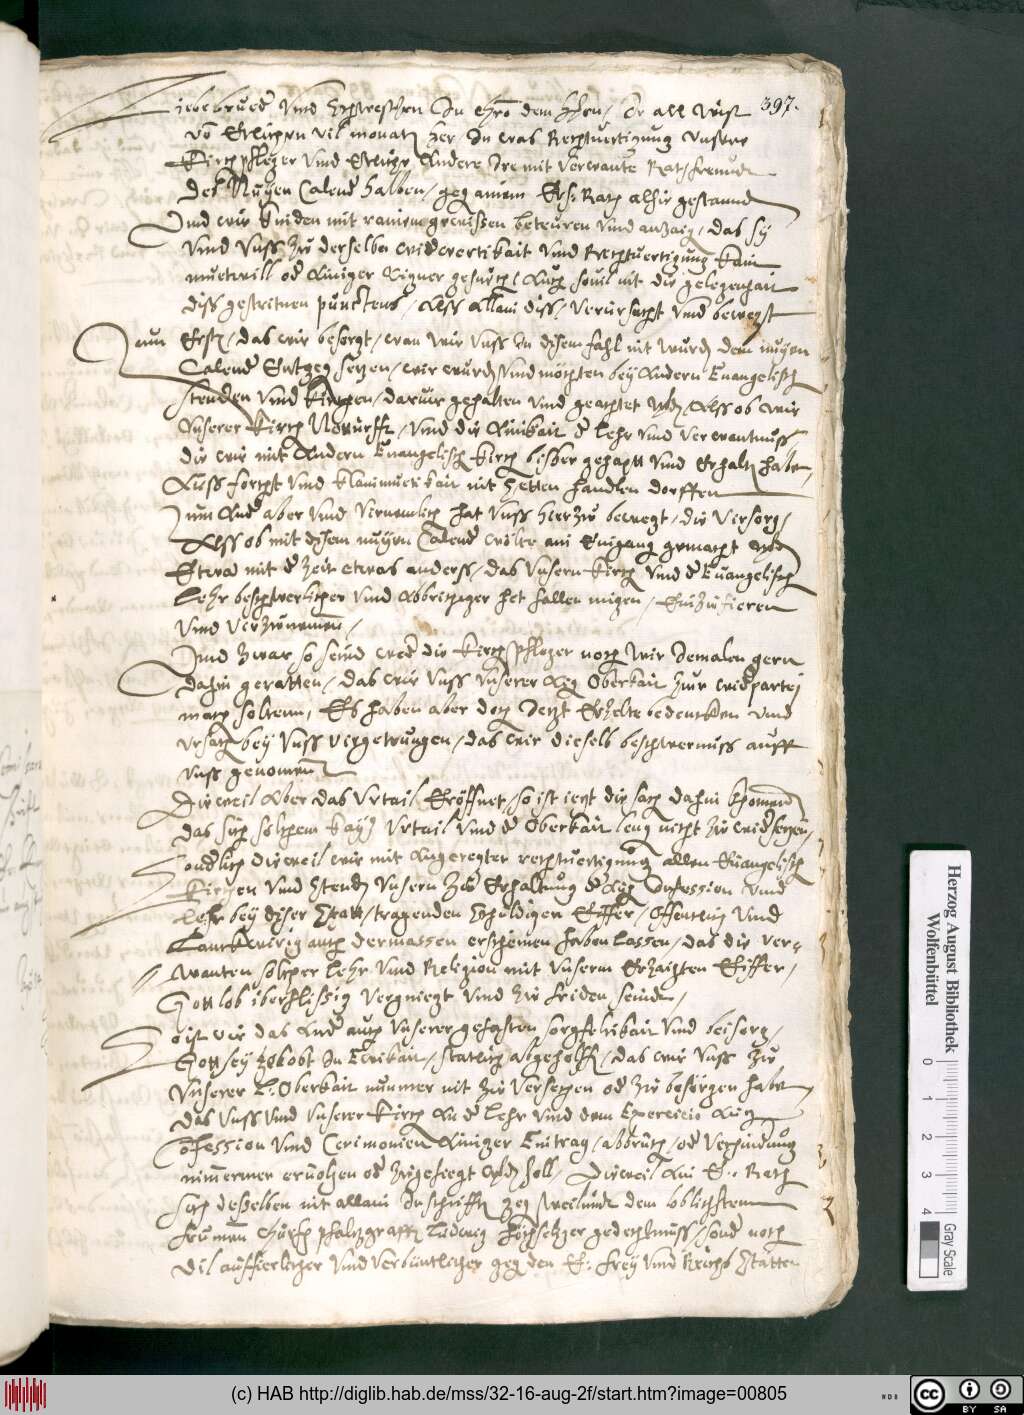 397.
Liebe brueder Vnnd Schwestern In Christo dem Herren, Ir all wüst
von Etlichen vil monaten her In was Rechtuertigung vnsere
Kirchpfleger vnnd Etliche Andere Ire mit verwante Ratsfreund
deß Neuen Calend. halben, gegen ainem Ers. Rath alhie gestannden
Vnd wir kinden mit rainem gewissen beteuren vnnd anzaigen, das sy
vnnd vnss zu derselben widerwertikait vnnd Rechtuertigung kain
muetwill oder Ainiger Aigner gesuech, Auch souil nit die gelegenhait
diss gestritnen punctens, Alss Allain diss, verursacht vnnd bewegt
Zum Ersten, das wir besorgt, wan wir vnss In disem fahl nit wurden dem neuen
Calender Entgegen setzen, wir wurden vnnd möchten bey Andern Euangelischen
Stenden vnnd Kirchen, darfür gehalten vnnd geachtet werden, Alss ob wir
Vnserer Kirchen Notturfft, vnnd die Ainikait der lehr vnnd verwantnuss
die wir mit Andern Euangelischen Kirchen bissher gehaptt vnnd Erhalten haben,
Auss forcht vnnd klainmuetikait nit hetten handlen dorffen
Zum Andern aber vnnd Virnemlich hat vnss hierzu bewegt, die Virsorg,
Alss ob mit disem neuen Calender wolte ain Eingang gemacht werden
Etwa mit der Zeit etwas anderss, das vnsern Kirchen vnnd der Euangelischen
Lehr beschwerlicher vnnd Abbrichiger het fallen migen, Einzufieren
vnnd vorzunemen,
Vnnd zwar so seind weder die Kirchpfleger noch wir Jemalen gern
dahin geratten, das wir vnss vnserer Aignen Oberkait zur widerpartej
machen soltenn, Es haben aber doch Jetzt Erzelte bedencken vnnd
vrsachen bey vnss virgetrungen, das wir dieselb beschwernuss auff
vnss genomen
Dieweil Aber das Vrtail Eröffnet, so ist ietzt die sach dahin khomen
das sich solchem kay. Vrtail vnnd der Oberkait lenger nicht zu widersetzen,
Sonderlich dieweil wir mit Angeregter rechtuertigung allen Euangelischen
Kirchen vnnd Stenden vnsern zu Erhaltung der Aug. Confession vnnd
Lehr bey diser Statt, tragenden schuldigen Eiffer, Offentlich vnnd
Lanckwirig auch dermassen erscheinen haben lassen, das die ver-
wanten solcher lehr vnnd Religion mit vnserm Erzaigten Eiffer,
Gott lob iberflissig vergniegt vnnd zu friden seind,
So ist vir das Ander auch vnserer gehapten sorgfelikait vnnd beisorg,
Gott sey gelobt In Ewikait, stattlich abgeholffen, das wir vnss zu
vnserer L. Oberkait nunmer nit zu versehen oder zu besorgen haben
das vnss vnnd vnserer Kirchen Ander Lehr vnnd dem Exercitio Aug.
Confession vnnd Cerimonien Ainiger Eintrag, abbruch, oder verhinderung
nimmermer eruolgen oder zugefiegt werden soll, Dieweil Ain E. Rath
sich desselben nit allain In schrifften gegen weilundt dem loblichsten
frumen Churf. Pfaltzgraffen Ludwig Hochseliger gedechtnuss, sonder noch
Vil ausfierlicher vnnd verbüntlicher gegen den E. Frey vnnd Reichs Stätten
Herzog August Bibliothek
Wolfenbüttel
0 1 2 3 4
Gray Scale
(c) HAB http://diglib.hab.de/mss/32-16-aug-2f/start.htm?image=00805
WDB
cc BY SA